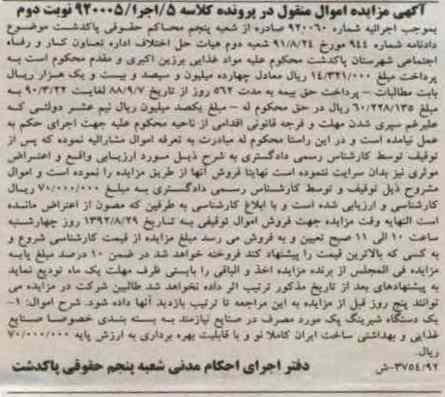 آگهی مزایده اموال منقول در پرونده کلاسه ۵/اجرا/۹۲۰۰۰۵ نوبت دوم
بموجب اجرائیه شماره ۹۲۰۰۶۰ صادره از شعبه پنجم محاکم حقوقی پاکدشت موضوع
دادنامه شماره ۹۴۴ مورخ ۹۱/۸/۲۴ شعبه دوم هیات حل اختلاف اداره تعاون کار و رفاه
اجتماعی شهرستان پاکدشت محکوم علیه مواد غذایی پرزین اکبری و مقدم محکوم است به
پرداخت مبلغ ۱۴/۳۲۱/۰۰۰ ریال معادل چهارده میلیون و سیصد و بیست و یک هزار ریال
بابت مطالبات – پرداخت حق بیمه به مدت ۵۶۲ روز از تاریخ ۸۸/۹/۷ لغایت ۹۰/۳/۲۲
– مبلغ ۶۰/۲۲۸/۱۳۵ ریال در حق محکوم له – مبلغ یکصد میلیون ریال نیم عشر دولتی که
علیرغم سپری شدن مهلت و فرجه قانونی اقدامی از ناحیه محکوم علیه جهت اجرای حکم به
عمل نیامده است و در این راستا محکوم له مبادرت به تعرفه اموال مشارالیه نموده که پس از
توقیف توسط کارشناس رسمی دادگستری به شرح ذیل مورد ارزیابی واقع و اعتراض
موثری نیز بدان سرایت ننموده است نهایتا فروش آنها از طریق مزایده را نموده است و اموال
مشروح ذیل توقیف و توسط کارشناس رسمی دادگستری به مبلغ ۷۰/۰۰۰/۰۰۰ ریال
کارشناسی و ارزیابی شده است و با ابلاغ کارشناسی به طرفین که مصون از اعتراض مانده
است النهایه وقت مزایده جهت فروش اموال توقیفی به تاریخ ۱۳۹۲/۸/۲۹ روز چهارشنبه
ساعت ۱۰ الی ۱۱ صبح تعیین و به فروش می رسد مبلغ مزایده از قیمت کارشناسی شروع و
به کسی که بالاترین قیمت را پیشنهاد کند فروخته خواهد شد در ضمن ۱۰ درصد مبلغ پایه
مزایده فی المجلس از برنده مزایده اخذ و الباقی را بایستی ظرف مهلت یک ماه تودیع نماید
به پیشنهادهای بعد از تاریخ مذکور ترتیب اثر داده نخواهد شد طالبین شرکت در مزایده می
توانند پنج روز قبل از مزایده به این مراجعه تا ترتیب بازدید آنها داده شود. شرح اموال: ۱-
یک دستگاه شیرینگ پک مورد مصرف در صنایع نیازمند به بسته بندی خصوصا صنایع
غذایی و بهداشتی ساخت ایران کاملا نو و با قابلیت بهره برداری به ارزش پایه ۷۰/۰۰۰/۰۰۰
ریال.
۳۷۵۴/۹۲-ش دفتر اجرای احکام مدنی شعبه پنجم حقوقی پاکدشت